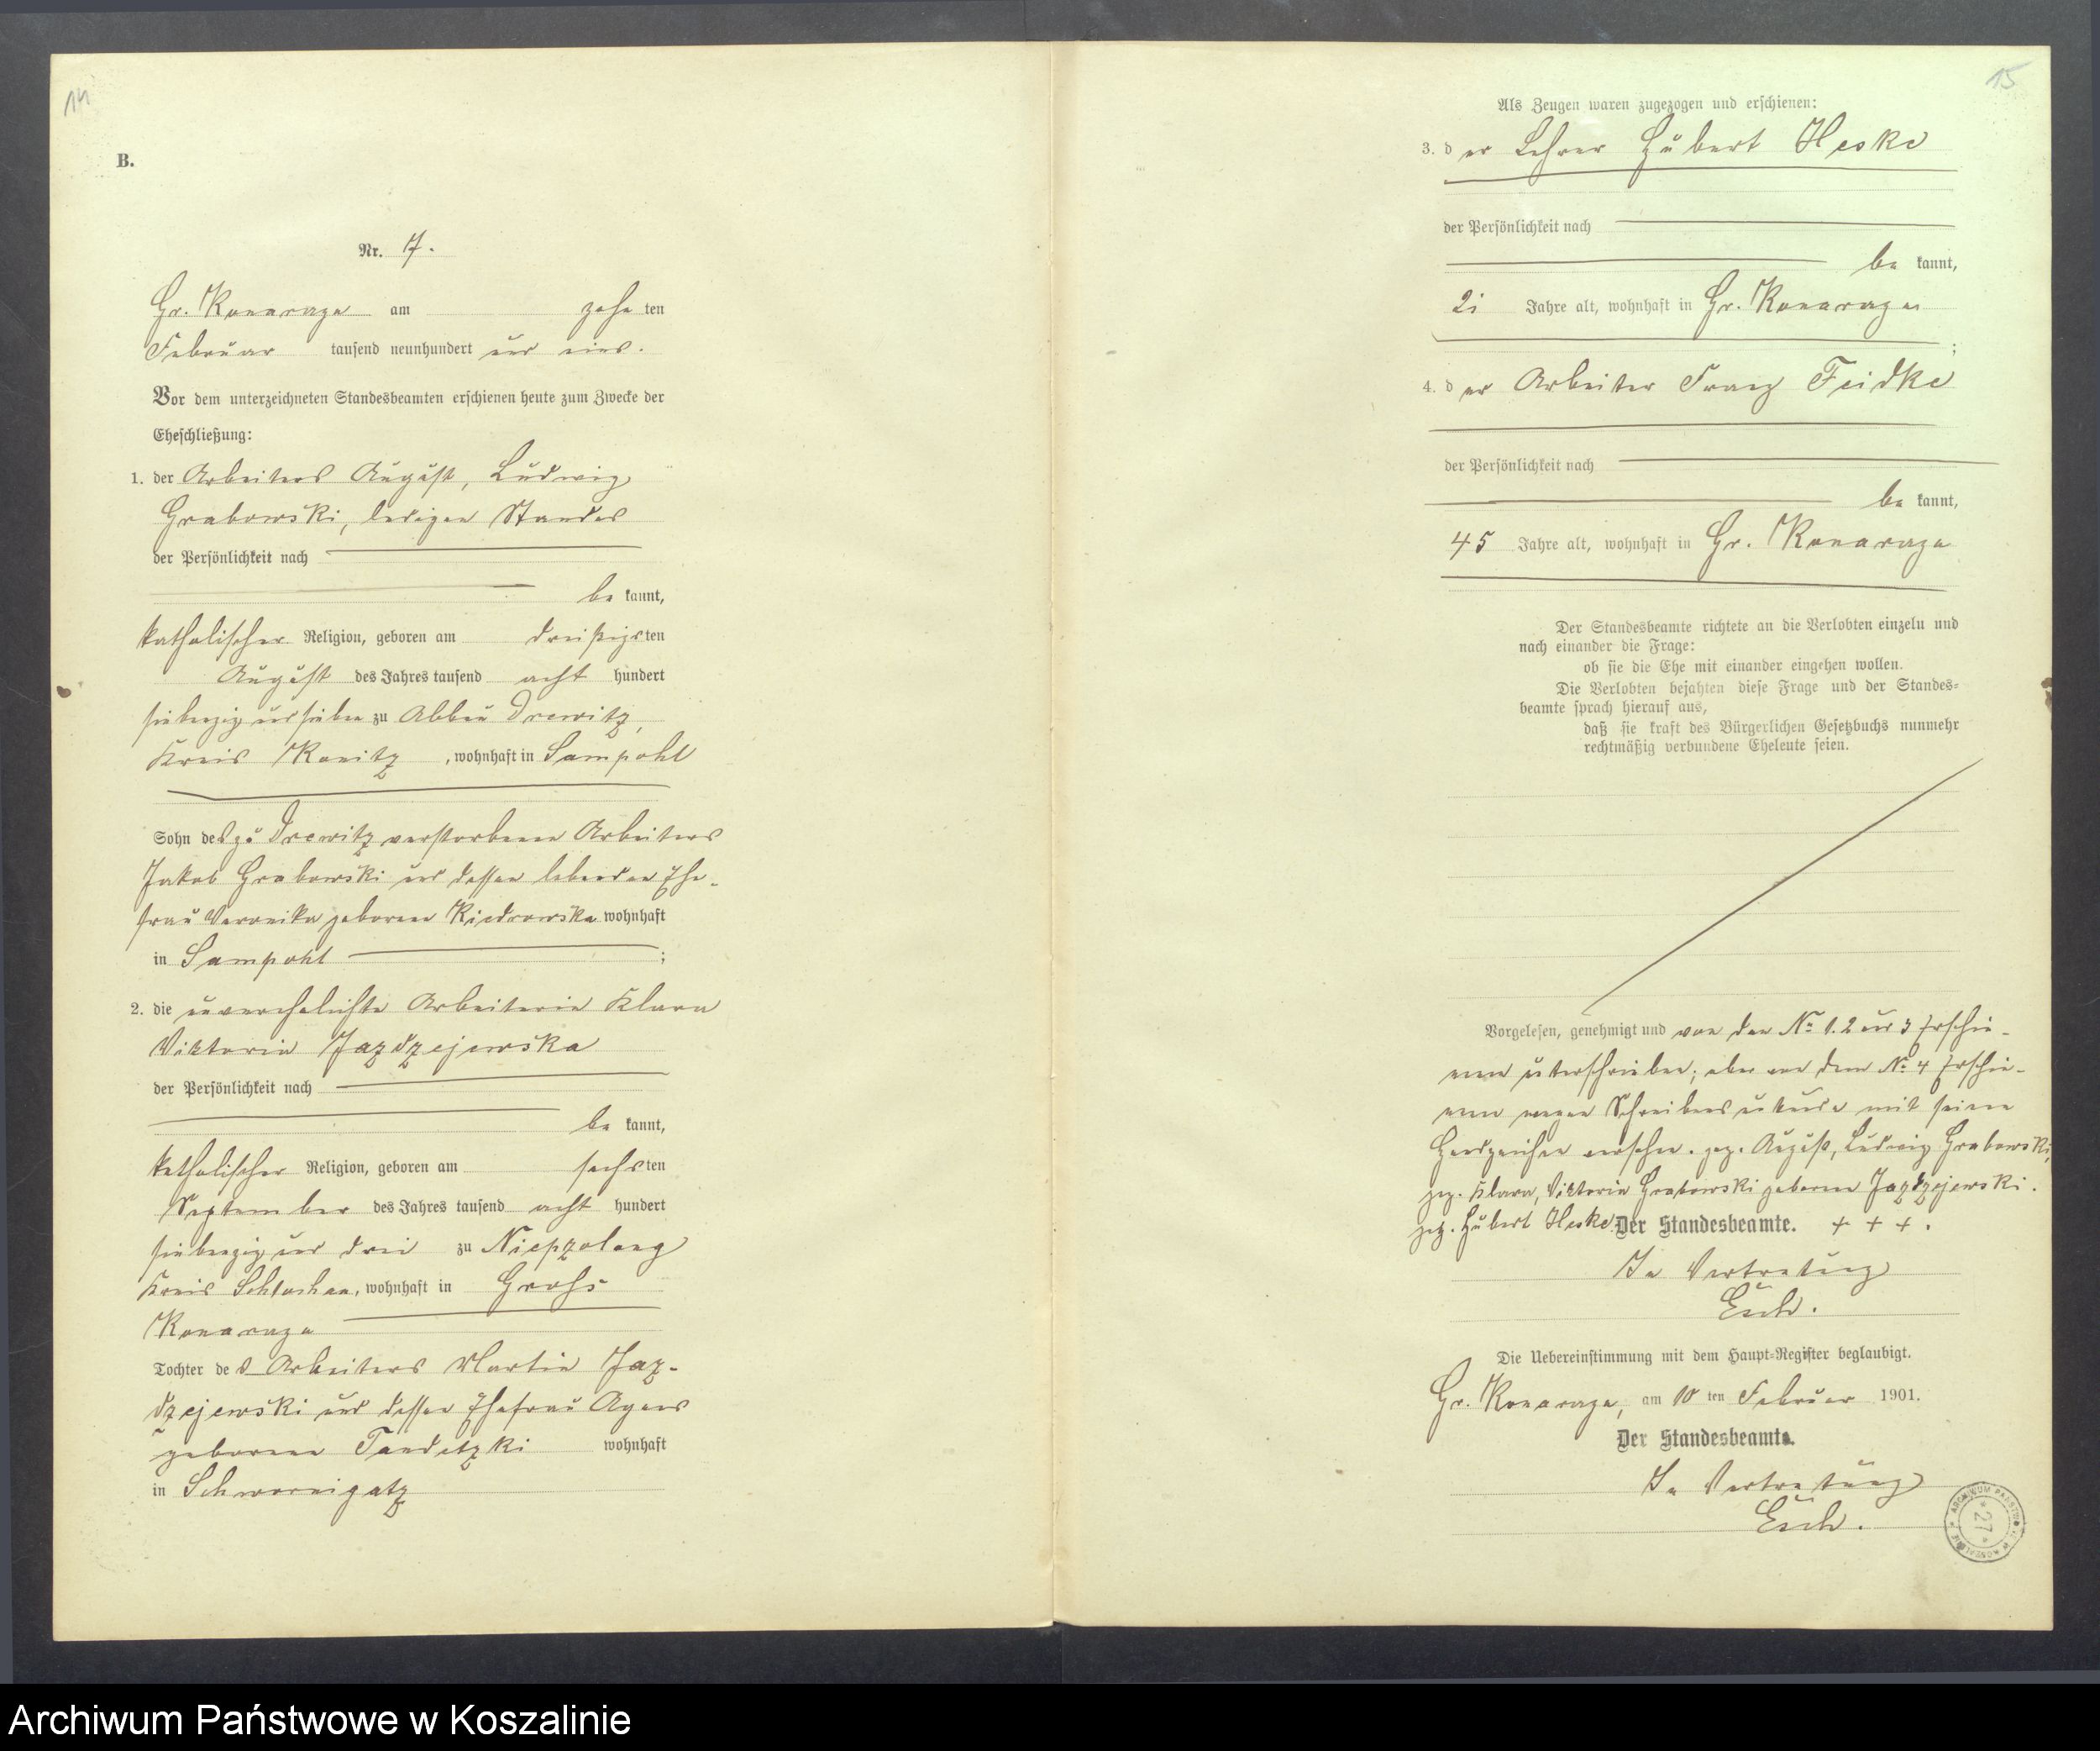 14
B.
Nr. 7.
Gr. Konarzyn am zehn ten
Februar tausend neunhundert und eins.
Vor dem unterzeichneten Standesbeamten erschienen heute zum Zwecke der
Eheschließung:
1. der Arbeiters August, Ludwig
Grabowski, ledigen Standes
der Persönlichkeit nach
be kannt,
katholischer Religion, geboren am dreißigs ten
August des Jahres tausend acht hundert
siebenzig und sieben zu Abbau Drewitz,
Kreis Konitz, wohnhaft in Sampohl
Sohn des zu Drewitz verstorbenen Arbeiters
Jakob Grabowski und dessen lebenden Ehe-
frau Veronika geborene Kiedrowska wohnhaft
in Sampohl ;
2. die unverehelichte Arbeiterin Klara
Viktoria Jazdzejewska
der Persönlichkeit nach
be kannt,
katholischer Religion, geboren am sechs ten
September des Jahres tausend acht hundert
siebenzig und drei zu Niepzolong
Kreis Schlochau, wohnhaft in Groß
Konarzyn
Tochter des Arbeiters Martin Jaz-
dzejewski und dessen Ehefrau Agnes
geborene Tandetzki wohnhaft
in Schwornigatz
15
Als Zeugen waren zugezogen und erschienen:
3. d er Lehrer Hubert Heske
der Persönlichkeit nach
be kannt,
21 Jahre alt, wohnhaft in Gr. Konarzyn
;
4. d er Arbeiter Franz Feidke
der Persönlichkeit nach
be kannt,
45 Jahre alt, wohnhaft in Gr. Konarzyn
Der Standesbeamte richtete an die Verlobten einzeln und
nach einander die Frage:
ob sie die Ehe mit einander eingehen wollen.
Die Verlobten bejahten diese Frage und der Standes=
beamte sprach hierauf aus,
daß sie kraft des Bürgerlichen Gesetzbuchs nunmehr
rechtmäßig verbundene Eheleute seien.
Vorgelesen, genehmigt und von den No 1. 2 und 3 Erschie-
nenen unterschrieben; aber von dem No 4 Erschie-
nenen wegen Schreibensunkunde mit seinem
Handzeichen versehen. gez. August, Ludwig Grabowski,
gez. Klara, Viktoria Grabowski geborene Jazdzejewski.
gez. Hubert Heske. Der Standesbeamte. + + + .
In Vertretung
Die Uebereinstimmung mit dem Haupt=Register beglaubigt.
Gr. Konarzyn, am 10 ten Februar 1901.
Der Standesbeamte.
In Vertretung
ARCHIWUM PAŃSTWOWE W KOSZALINIE
27
Archiwum Państwowe w Koszalinie